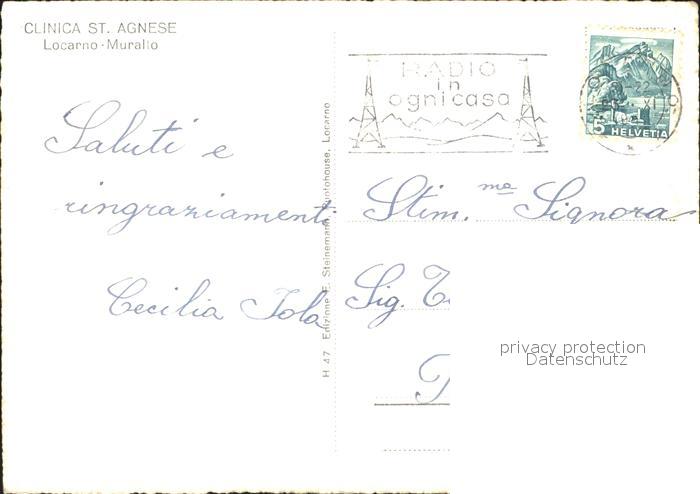 CLINICA ST. AGNESE
Locarno-Muralto
Saluti e
ringraziamenti
Cecilia Iola
H 47 Edizione E. Steinemann, Photohouse, Locarno
RADIO
in
ogni casa
22
XI
5 HELVETIA
Stim. ma Signora
Sig.
privacy protection
Datenschutz